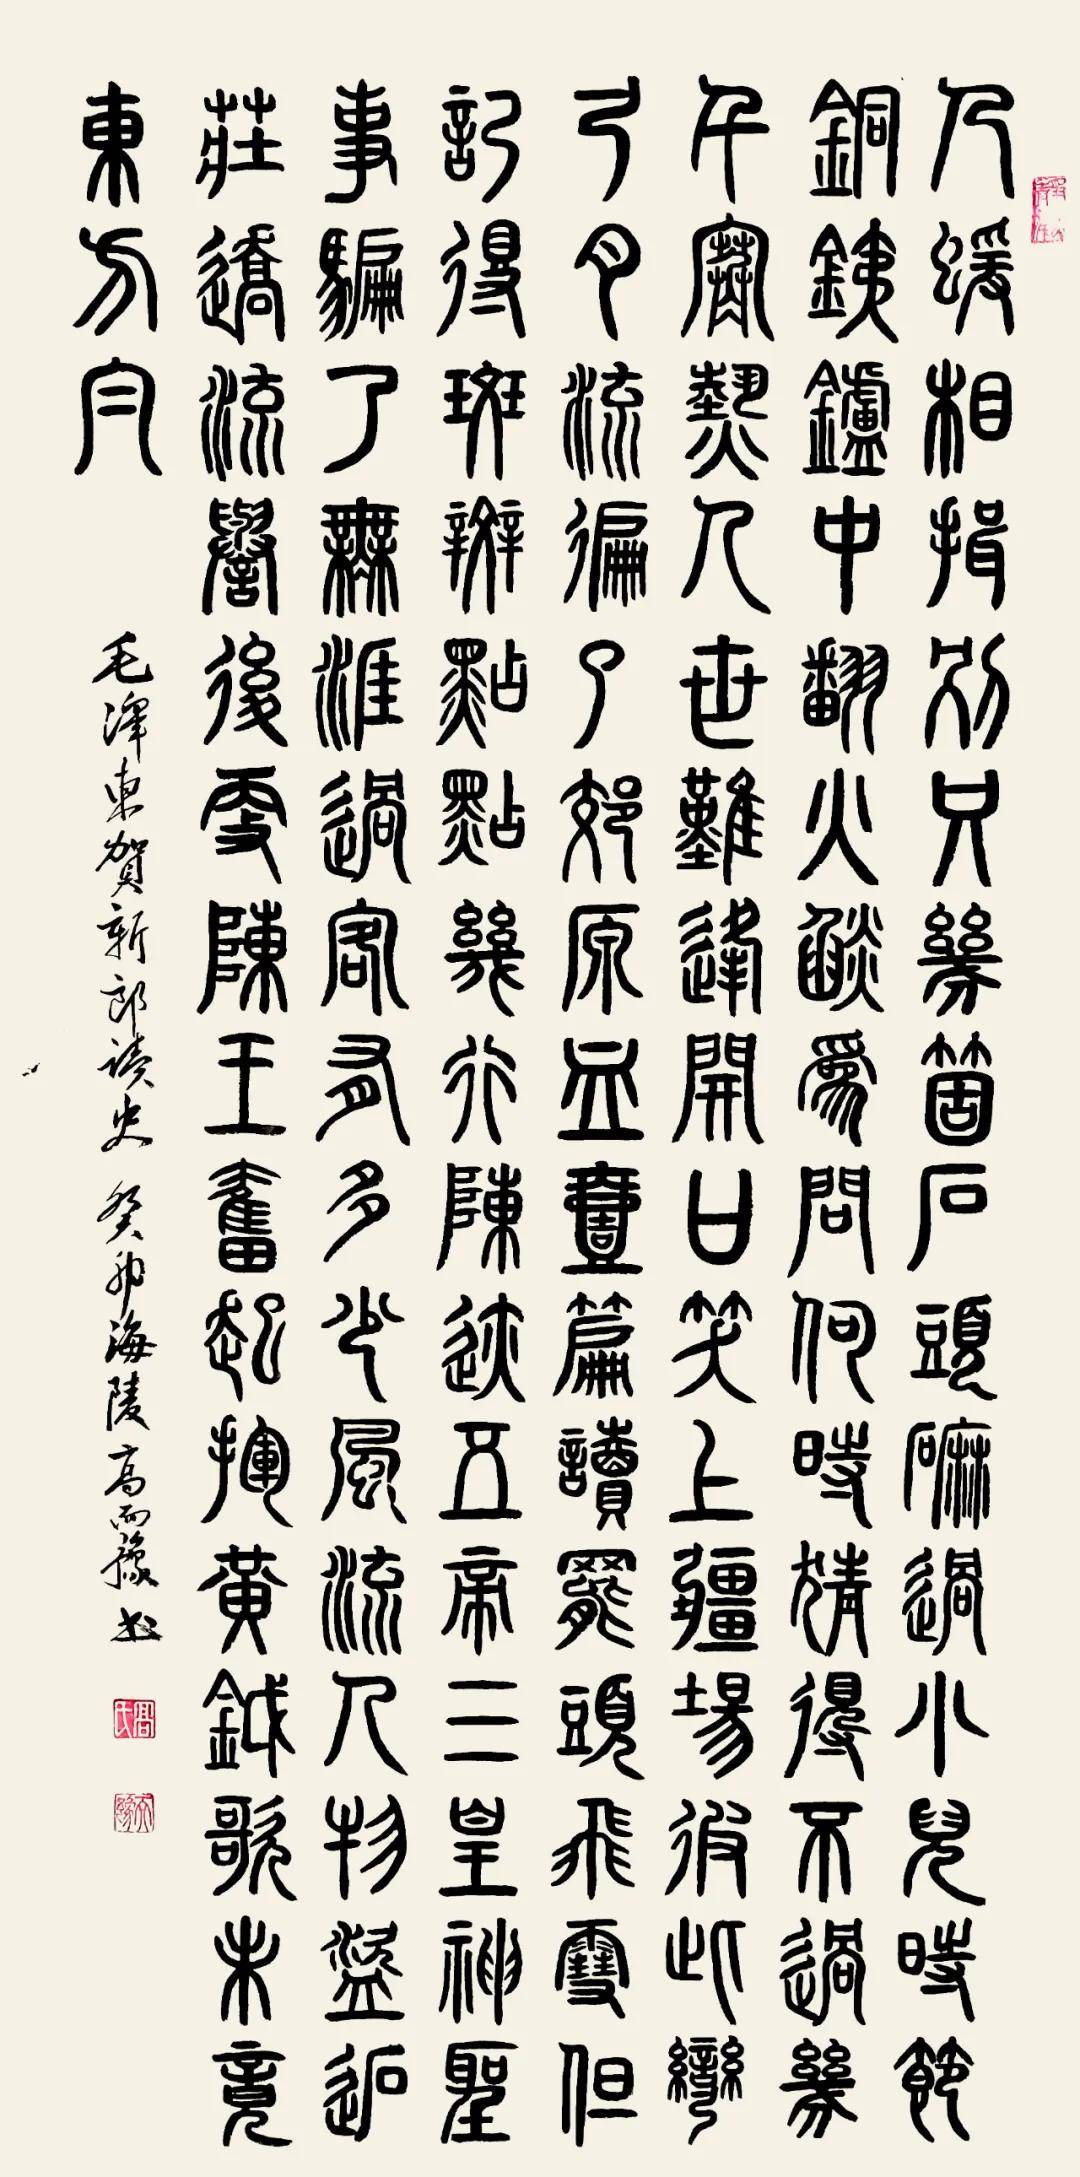 人蝯相揖別只幾箇石頭磨過小兒時節
銅銕鑪中翻火燄為問何時猜得不過幾
千寒熱人世難逢開口笑上疆場彼此彎
弓月流徧了郊原血壹篇讀罷頭飛雪但
記得斑辬點點幾行陳迹五帝三皇神聖
事騙了無涯過客有多少風流人物盜跖
莊蹻流譽後更陳王奮起揮黃鉞歌未竟
東方白
毛澤東賀新郎讀史 癸卯海陵高而豫书
高氏
而豫